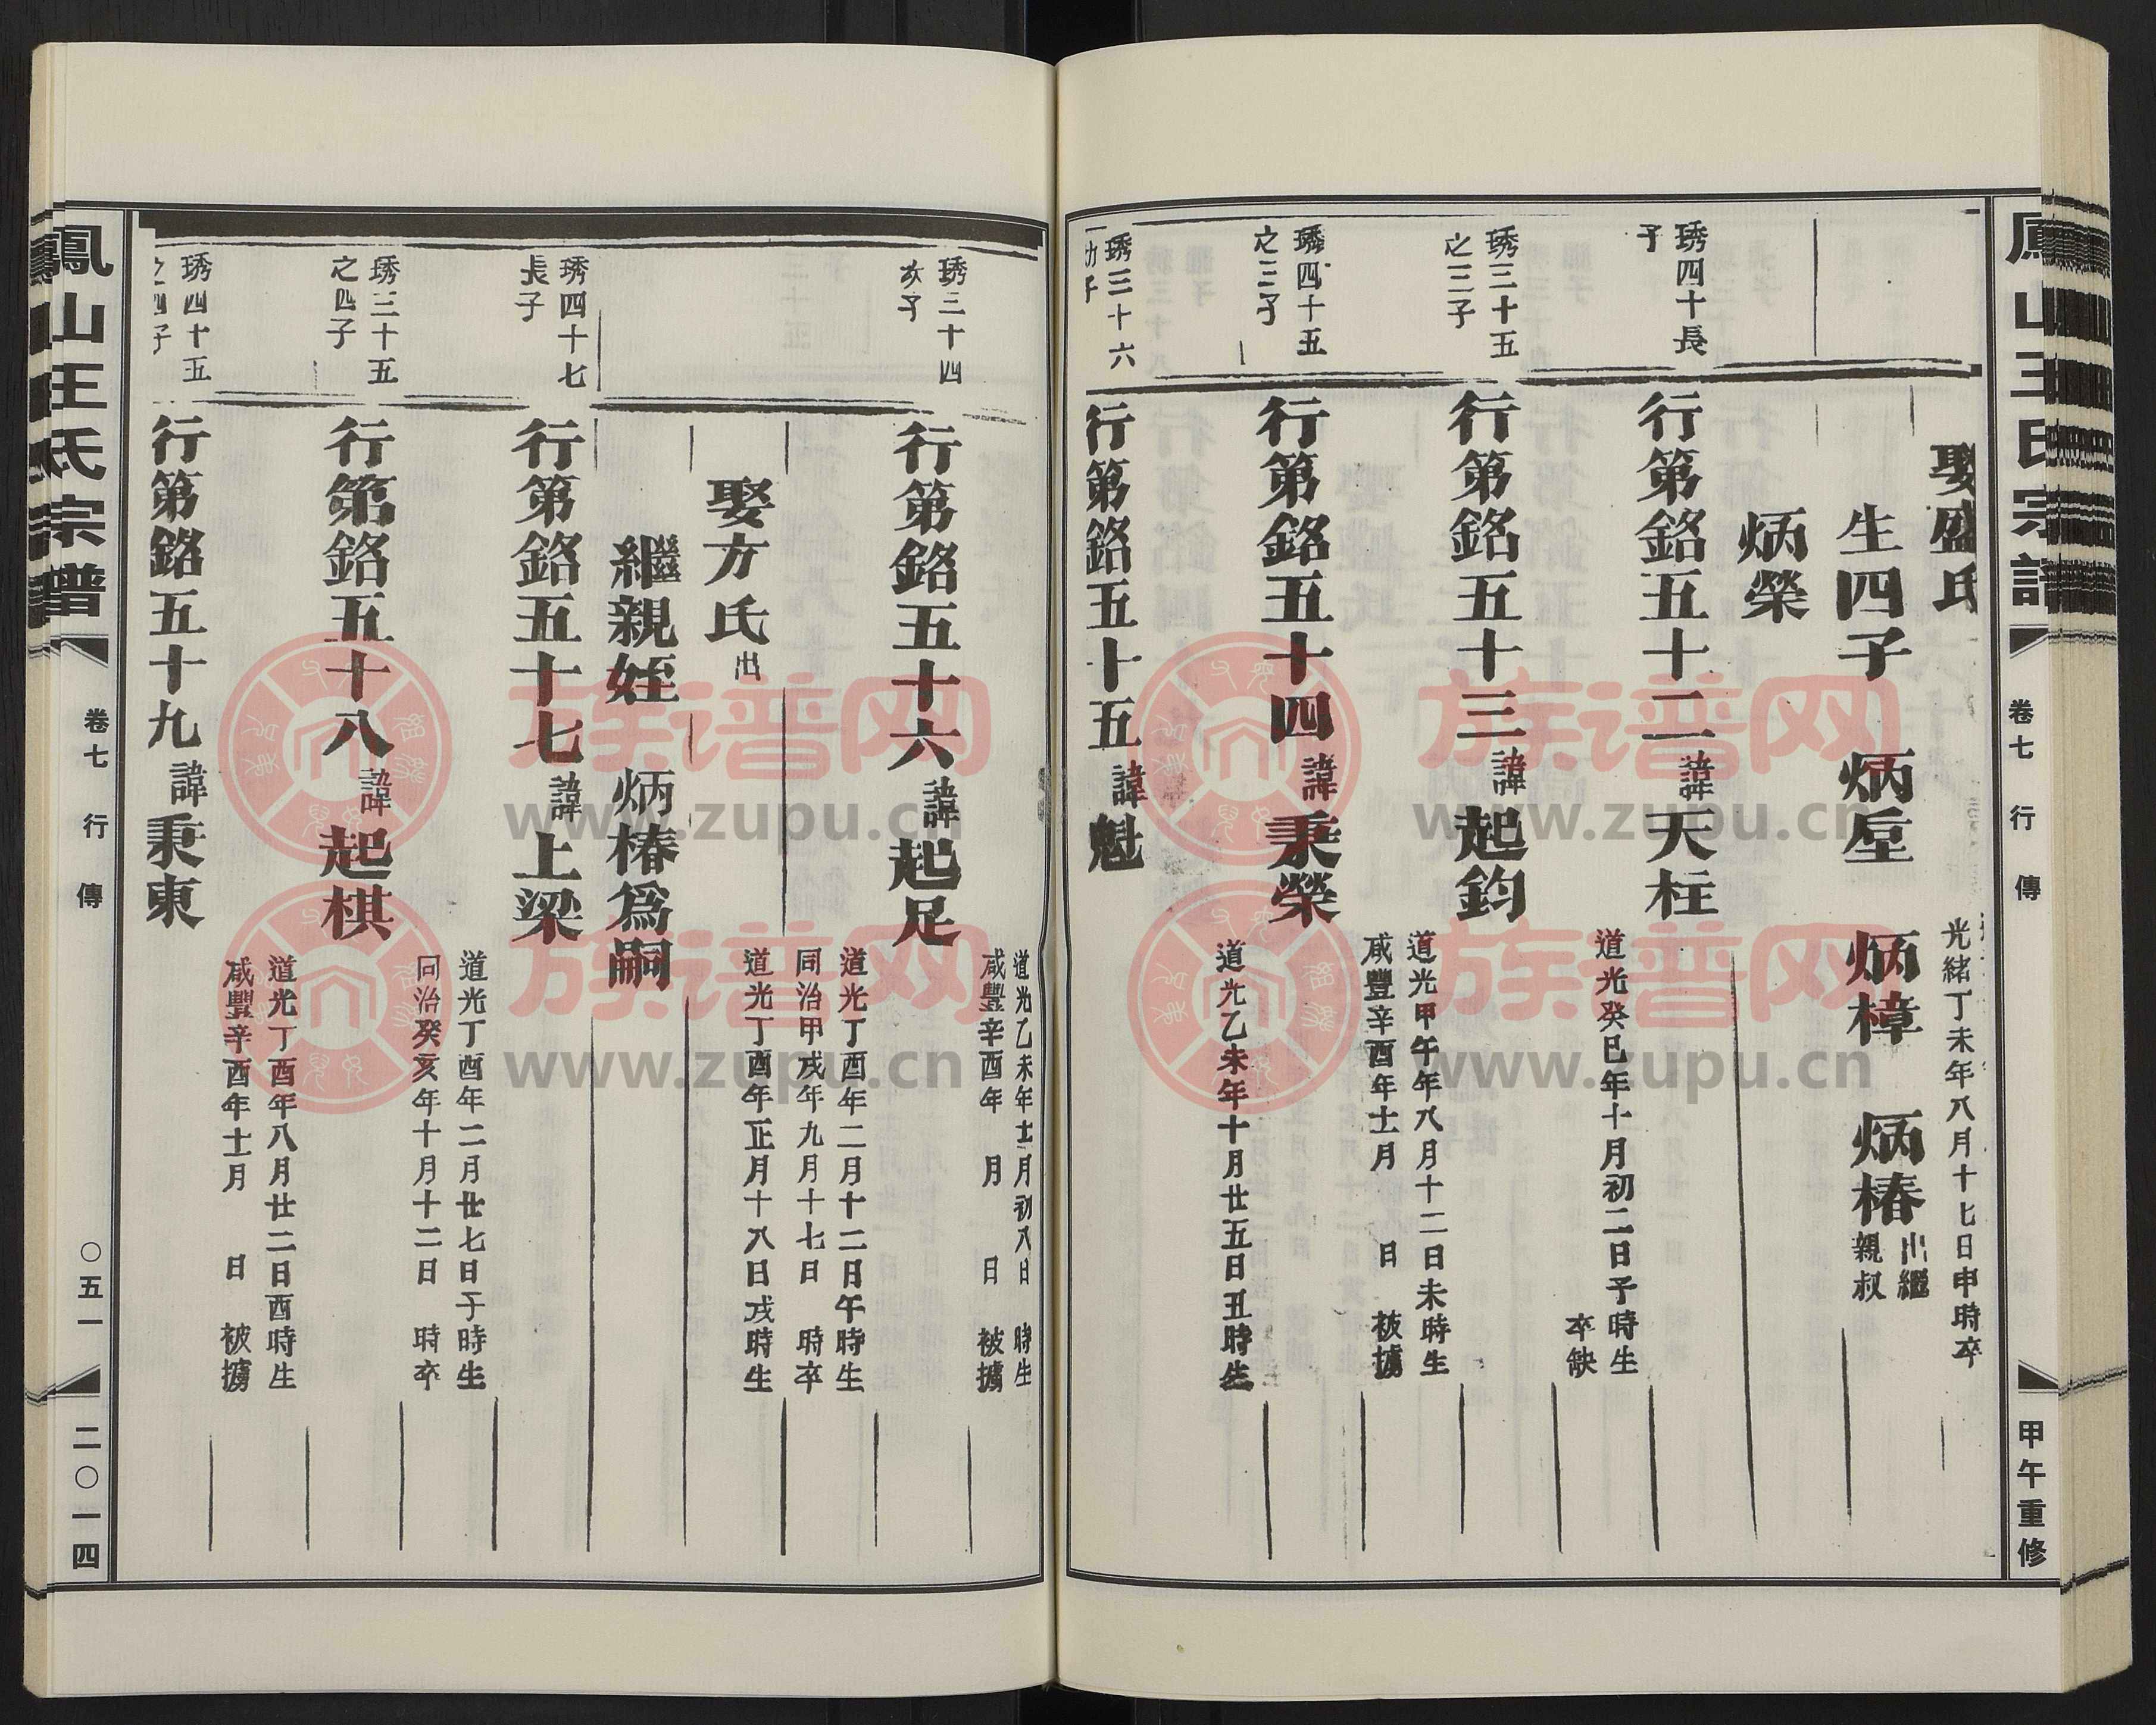 王氏宗譜
卷七
行傳
甲午重修
娶盛氏
光緒丁未年八月十七日申時卒
生四子 炳垕 炳樟 炳椿 出繼
親叔
炳榮
琇四十長
子
行第銘五十二 諱 天柱
琇三十五
之三子
行第銘五十三 諱 起鈞
道光癸巳年十月初二日子時生
卒缺
琇四十五
之三子
行第銘五十四 諱 秉榮
道光甲午年八月十二日未時生
咸豐辛酉年十二月 日 被擄
琇三十六
幼子
行第銘五十五 諱 魁
道光乙未年十月廿五日丑時生
道光乙未年十二月初八日 時生
咸豐辛酉年 月 日 被擄
琇三十四
次子
行第銘五十六 諱 起足
道光丁酉年二月十二日午時生
同治甲戌年九月十七日 時卒
娶方氏 出
道光丁酉年正月十八日戌時生
繼親姪 炳椿爲嗣
琇四十七
長子
行第銘五十七 諱 上梁
道光丁酉年二月廿七日子時生
同治癸亥年十月十二日 時卒
琇三十五
之四子
行第銘五十八 諱 起棋
道光丁酉年八月廿二日酉時生
咸豐辛酉年十二月 日 被擄
琇四十五
之四子
行第銘五十九 諱 秉東
鳳山王氏宗譜
卷七
行傳
〇五一
二〇一四
族谱网
www.zupu.cn
族谱网
www.zupu.cn
族谱网
www.zupu.cn
族谱网
www.zupu.cn